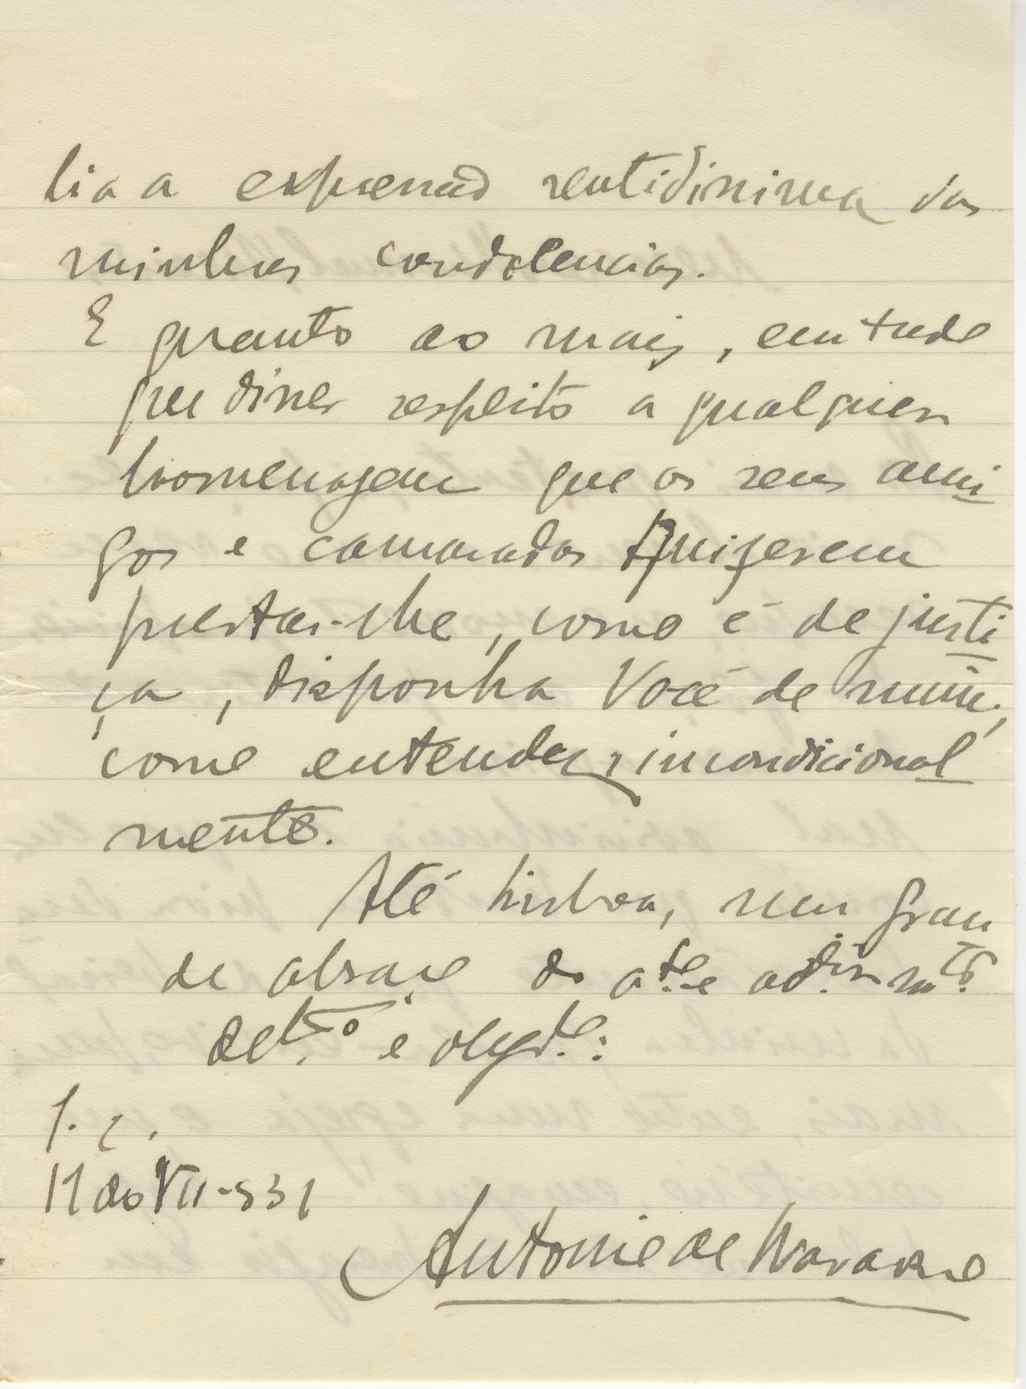 lia a expressão sentidissima das
minhas condolencias.
E quanto ao mais, em tudo
que disser respeito a qualquer
homenagem que os seus ami
gos e camaradas quizerem
prestar-lhe, como é de justi
ça, disponha Você de mim,
como entender, incondicional
mente.
Até Lisboa, num gran
de abraço do at.te e adm.or m.to
ded.
11 do VII-931
Antonio de Navarro